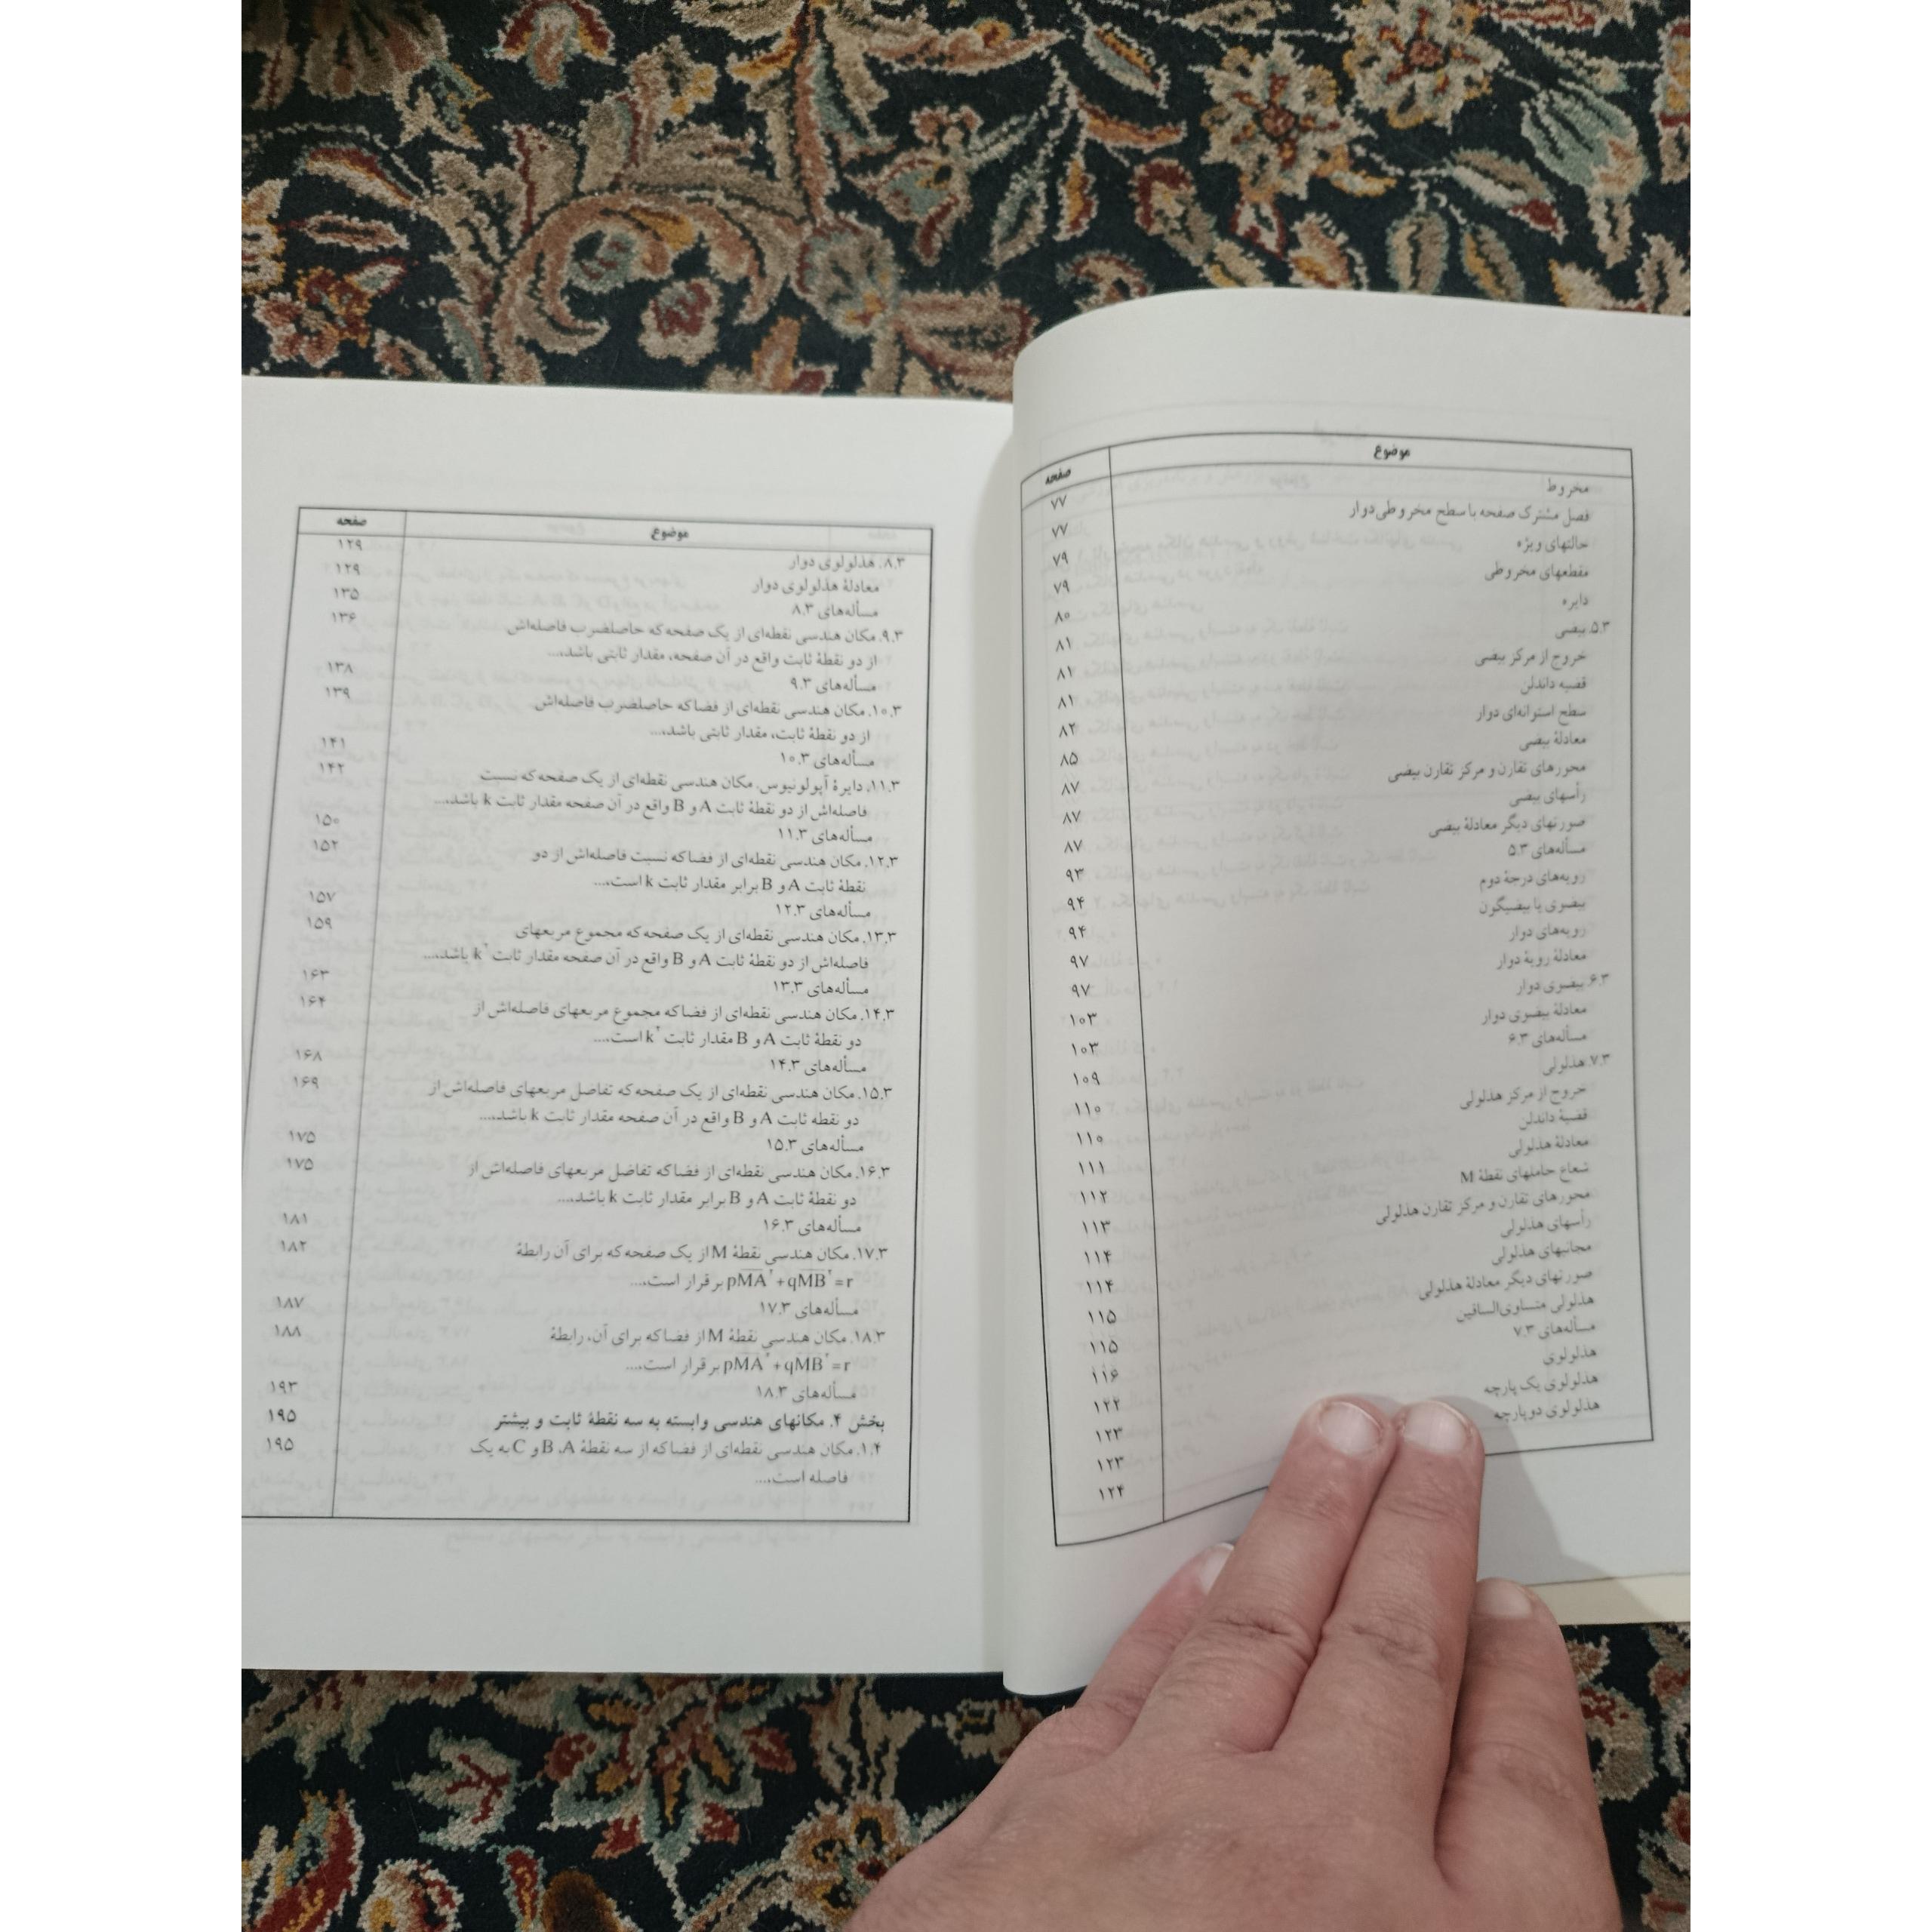 موضوع
صفحه
مخروط ۷۷
فصل مشترک صفحه با سطح مخروطی دوار ۷۷
حالتهای ویژه ۷۹
مقطعهای مخروطی ۷۹
دایره ۸۰
۵.۳. بیضی ۸۱
خروج از مرکز بیضی ۸۱
قضیه داندلن ۸۱
سطح استوانه‌ای دوار ۸۲
معادلهٔ بیضی ۸۵
محورهای تقارن و مرکز تقارن بیضی ۸۷
رأسهای بیضی ۸۷
صورتهای دیگر معادلهٔ بیضی ۸۷
مسأله‌های ۵.۳ ۹۳
رویه‌های درجهٔ دوم ۹۴
بیضوی یا بیضیگون ۹۴
رویه‌های دوار ۹۷
معادلهٔ رویهٔ دوار ۹۷
۶.۳. بیضوی دوار ۱۰۳
معادلهٔ بیضوی دوار ۱۰۳
مسأله‌های ۶.۳ ۱۰۹
۷.۳. هذلولی ۱۱۰
خروج از مرکز هذلولی ۱۱۰
قضیهٔ داندلن ۱۱۱
معادلهٔ هذلولی ۱۱۲
شعاع حاملهای نقطهٔ M ۱۱۳
محورهای تقارن و مرکز تقارن هذلولی ۱۱۴
رأسهای هذلولی ۱۱۴
مجانبهای هذلولی ۱۱۵
صورتهای دیگر معادلهٔ هذلولی ۱۱۵
هذلولی متساوی‌الساقین ۱۱۶
مسأله‌های ۷.۳ ۱۲۲
هذلولوی ۱۲۳
هذلولوی یک پارچه ۱۲۳
هذلولوی دوپارچه ۱۲۴
موضوع
صفحه
۸.۳. هذلولوی دوار ۱۲۹
معادلهٔ هذلولوی دوار ۱۲۹
مسأله‌های ۸.۳ ۱۳۵
۹.۳. مکان هندسی نقطه‌ای از یک صفحه که حاصلضرب فاصله‌اش ۱۳۶
از دو نقطهٔ ثابت واقع در آن صفحه، مقدار ثابتی باشد،...
مسأله‌های ۹.۳ ۱۳۸
۱۰.۳. مکان هندسی نقطه‌ای از فضا که حاصلضرب فاصله‌اش ۱۳۹
از دو نقطهٔ ثابت، مقدار ثابتی باشد،...
مسأله‌های ۱۰.۳ ۱۴۱
۱۱.۳. دایرهٔ آپولونیوس. مکان هندسی نقطه‌ای از یک صفحه که نسبت ۱۴۲
فاصله‌اش از دو نقطهٔ ثابت A و B واقع در آن صفحه مقدار ثابت k باشد،...
مسأله‌های ۱۱.۳ ۱۵۰
۱۲.۳. مکان هندسی نقطه‌ای از فضا که نسبت فاصله‌اش از دو ۱۵۲
نقطهٔ ثابت A و B برابر مقدار ثابت k است،...
مسأله‌های ۱۲.۳ ۱۵۷
۱۳.۳. مکان هندسی نقطه‌ای از یک صفحه که مجموع مربعهای ۱۵۹
فاصله‌اش از دو نقطهٔ ثابت A و B واقع در آن صفحه مقدار ثابت k۲ باشد،...
مسأله‌های ۱۳.۳ ۱۶۳
۱۴.۳. مکان هندسی نقطه‌ای از فضا که مجموع مربعهای فاصله‌اش از ۱۶۴
دو نقطهٔ ثابت A و B مقدار ثابت k۲ است،...
مسأله‌های ۱۴.۳ ۱۶۸
۱۵.۳. مکان هندسی نقطه‌ای از یک صفحه که تفاضل مربعهای فاصله‌اش از ۱۶۹
دو نقطه ثابت A و B واقع در آن صفحه مقدار ثابت k باشد،...
مسأله‌های ۱۵.۳ ۱۷۵
۱۶.۳. مکان هندسی نقطه‌ای از فضا که تفاضل مربعهای فاصله‌اش از ۱۷۵
دو نقطهٔ ثابت A و B برابر مقدار ثابت k باشد،...
مسأله‌های ۱۶.۳ ۱۸۱
۱۷.۳. مکان هندسی نقطهٔ M از یک صفحه که برای آن رابطهٔ ۱۸۲
pMA۲+qMB۲=r برقرار است،...
مسأله‌های ۱۷.۳ ۱۸۷
۱۸.۳. مکان هندسی نقطهٔ M از فضا که برای آن، رابطهٔ ۱۸۸
pMA۲+qMB۲=r برقرار است،...
مسأله‌های ۱۸.۳ ۱۹۳
بخش ۴. مکانهای هندسی وابسته به سه نقطهٔ ثابت و بیشتر ۱۹۵
۱.۴. مکان هندسی نقطه‌ای از فضا که از سه نقطهٔ A، B و C به یک ۱۹۵
فاصله است،...